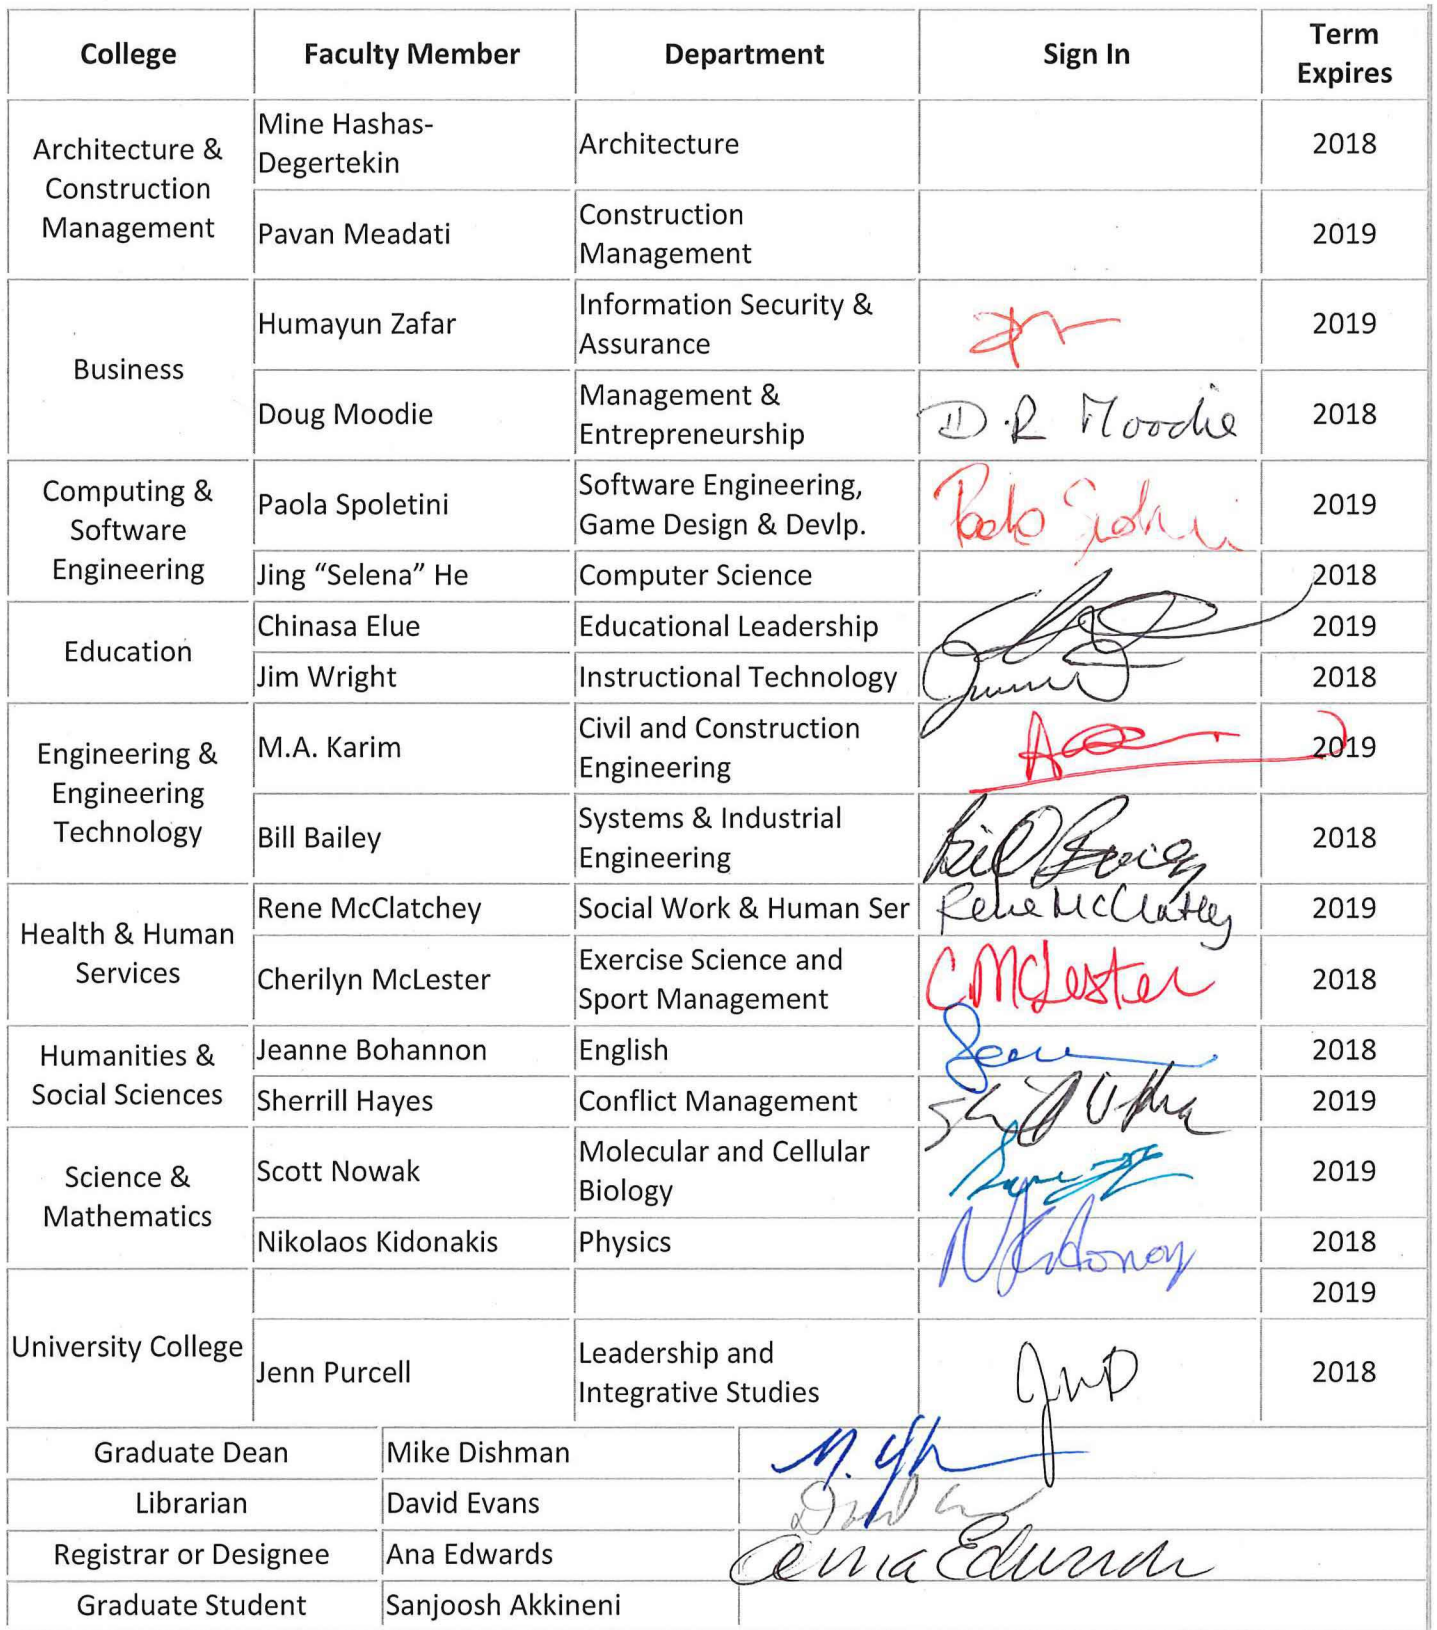 College Faculty Member Department Sign In Term Expires
Architecture & Construction Management
Mine Hashas-Degertekin Architecture 2018
Pavan Meadati Construction Management 2019
Business
Humayun Zafar Information Security & Assurance 2019
Doug Moodie Management & Entrepreneurship D.R Moodie 2018
Computing & Software Engineering
Paola Spoletini Software Engineering, Game Design & Devlp. 2019
Jing “Selena” He Computer Science 2018
Education
Chinasa Elue Educational Leadership 2019
Jim Wright Instructional Technology 2018
Engineering & Engineering Technology
M.A. Karim Civil and Construction Engineering 2019
Bill Bailey Systems & Industrial Engineering Bill Bailey 2018
Health & Human Services
Rene McClatchey Social Work & Human Ser Rene McClatchey 2019
Cherilyn McLester Exercise Science and Sport Management C. McLester 2018
Humanities & Social Sciences
Jeanne Bohannon English 2018
Sherrill Hayes Conflict Management 2019
Science & Mathematics
Scott Nowak Molecular and Cellular Biology 2019
Nikolaos Kidonakis Physics 2018
University College
2019
Jenn Purcell Leadership and Integrative Studies 2018
Graduate Dean Mike Dishman
Librarian David Evans
Registrar or Designee Ana Edwards Ana Edwards
Graduate Student Sanjoosh Akkineni